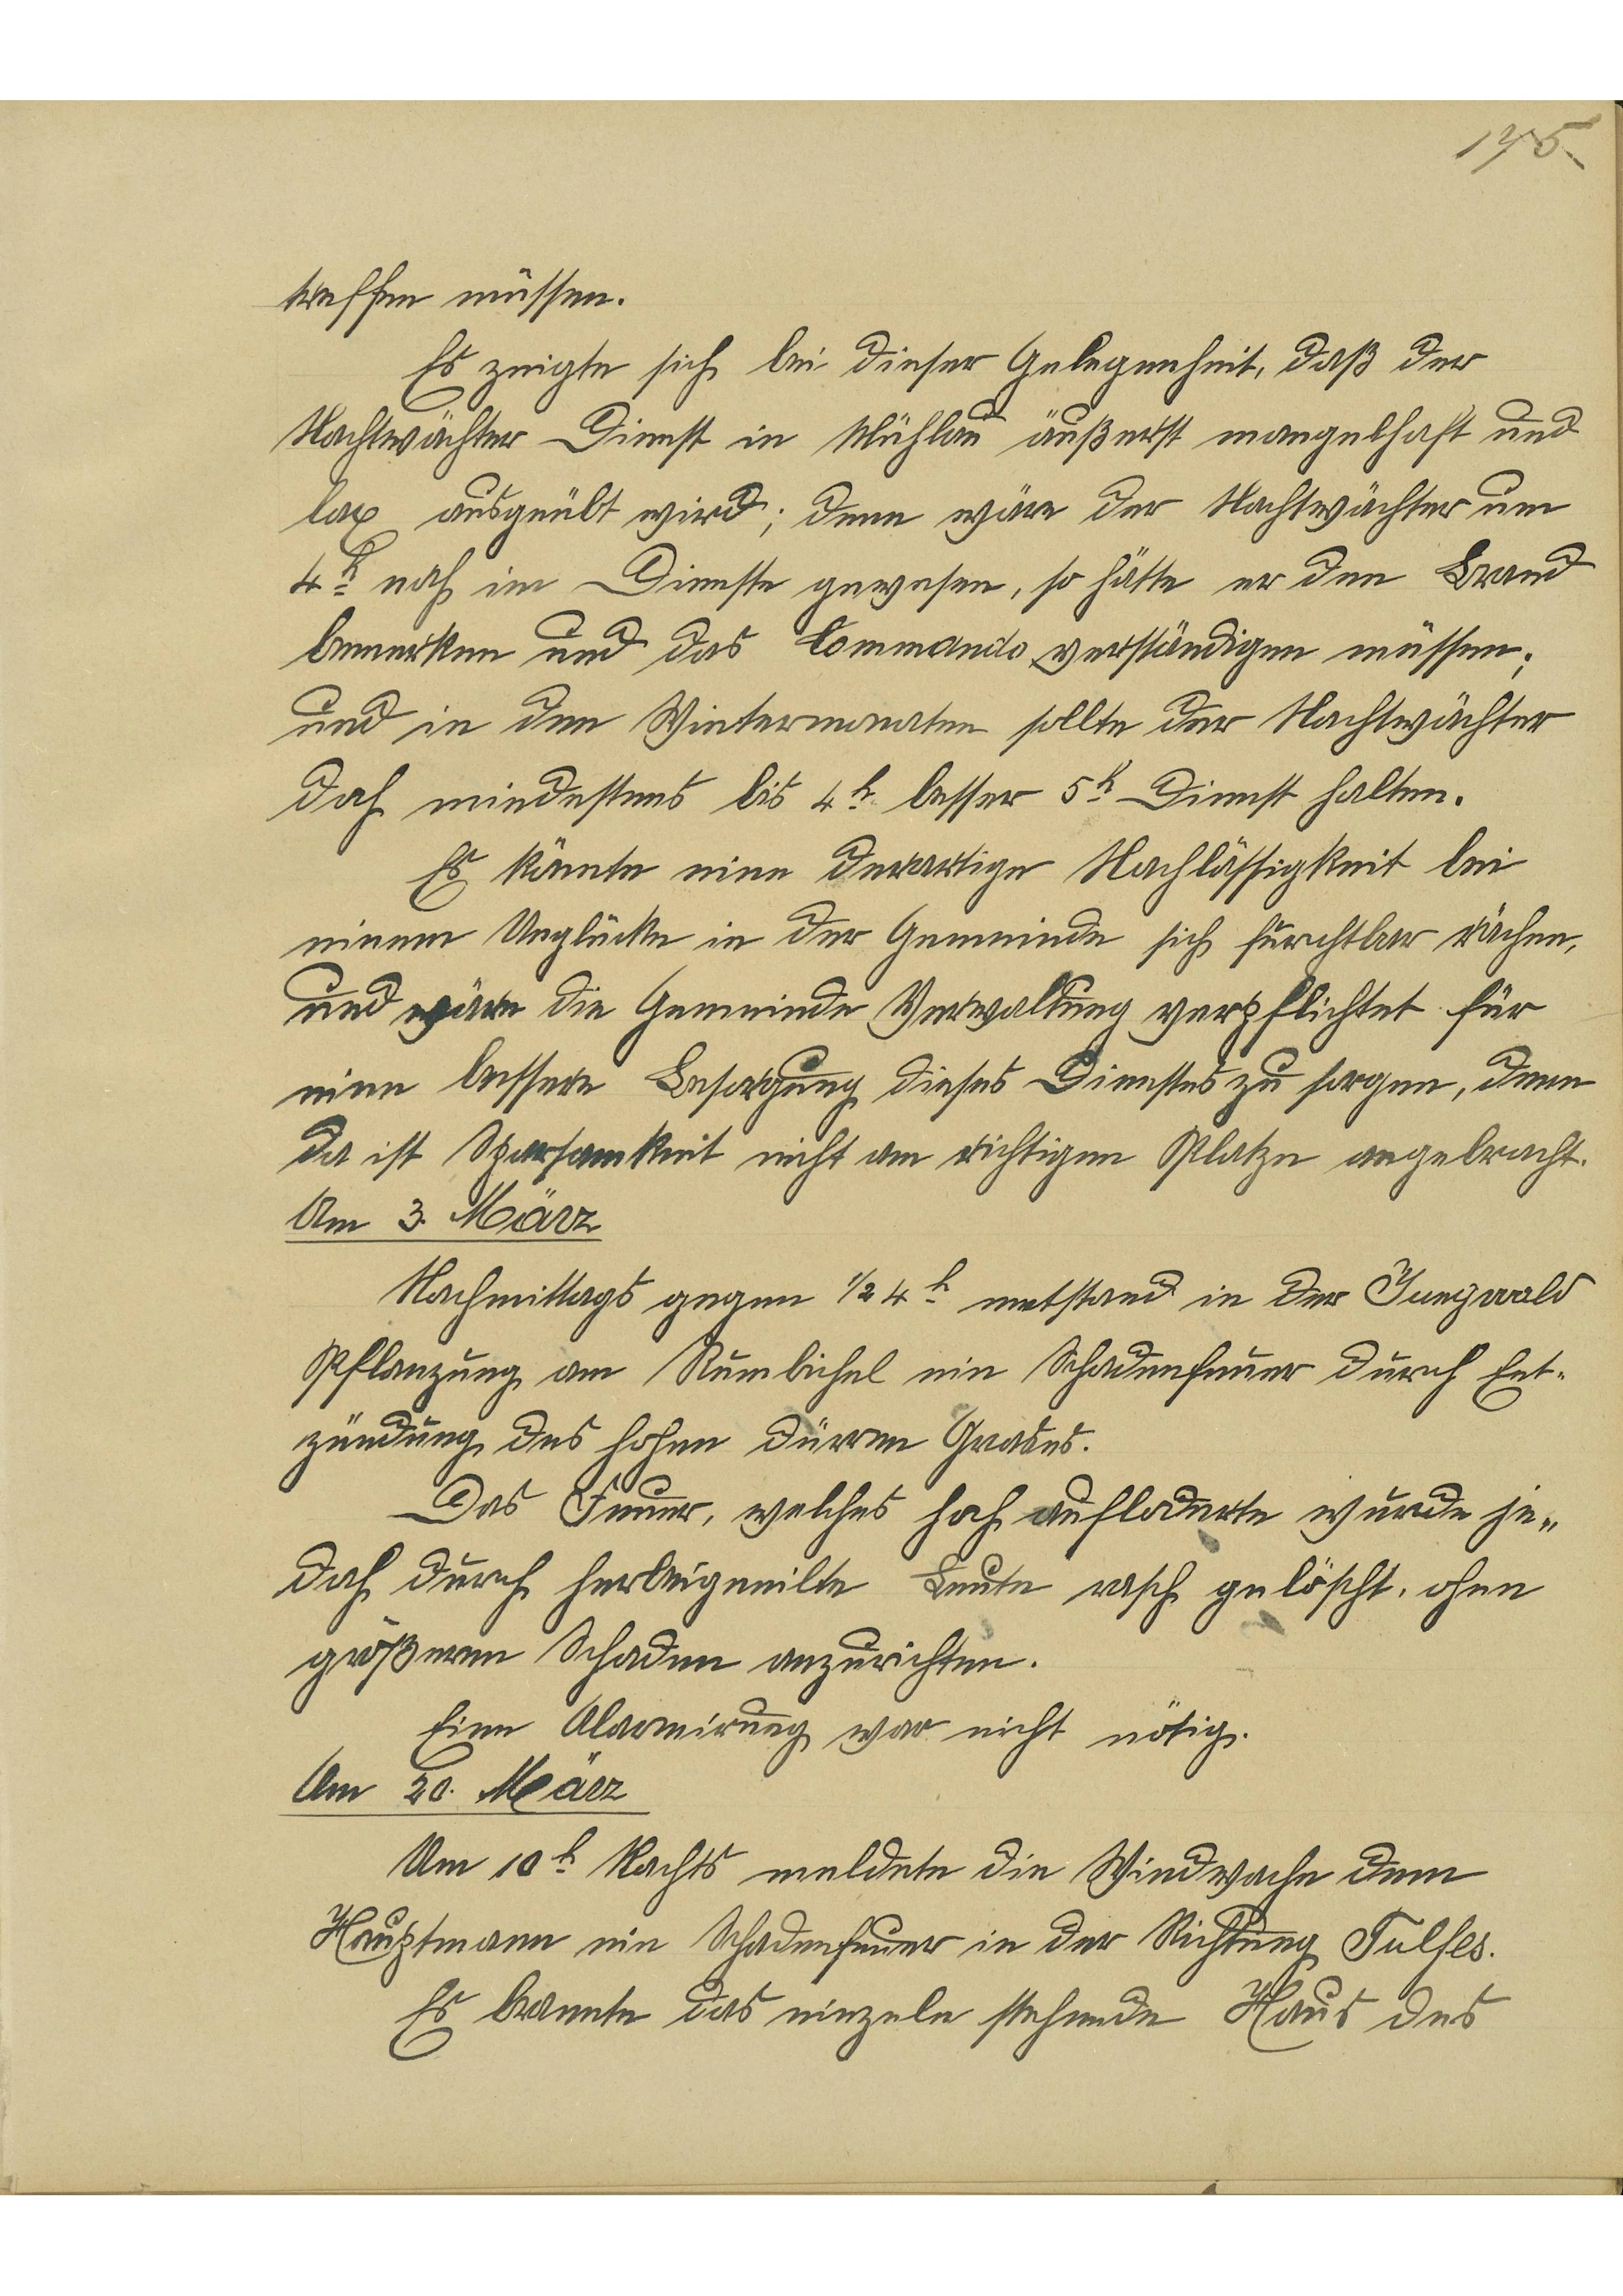 175
treffen müssen.
Es zeigte sich bei dieser Gelegenheit, daß der
Nachtwächter Dienst in Mühlau äußerst mangelhaft und
lax ausgeübt wird; denn wäre der Nachtwächter um
4h noch im Dienste gewesen, so hätte er den Brand
bemerken und das Commando verständigen müssen;
und in den Wintermonaten sollte der Nachtwächter
doch mindestens bis 4h besser 5h Dienst halten.
Es könnte eine derartige Nachlässigkeit bei
einem Unglücke in der Gemeinde sich furchtbar rächen,
und wäre die Gemeinde Verwaltung verpflichtet für
eine bessere Besorgung dieses Dienstes zu sorgen, denn
da ist Sparsamkeit nicht am richtigen Platze angebracht.
Am 3. März
Nachmittags gegen 1/2 4h entstand in der Jungwald
Pflanzung am Rumbichel ein Schadenfeuer durch Ent-
zündung des hohen dürren Grases.
Das Feuer, welches hoch aufloderte wurde je„
doch durch herbeigeeilte Leute rasch gelöscht, ohne
größeren Schaden anzurichten.
Eine Alarmirung war nicht nötig.
Am 20. März
Um 10h Nachts meldete die Windwache dem
Hauptmann ein Schadenfeuer in der Richtung Tulfes.
Es brannte das einzeln stehende Haus des